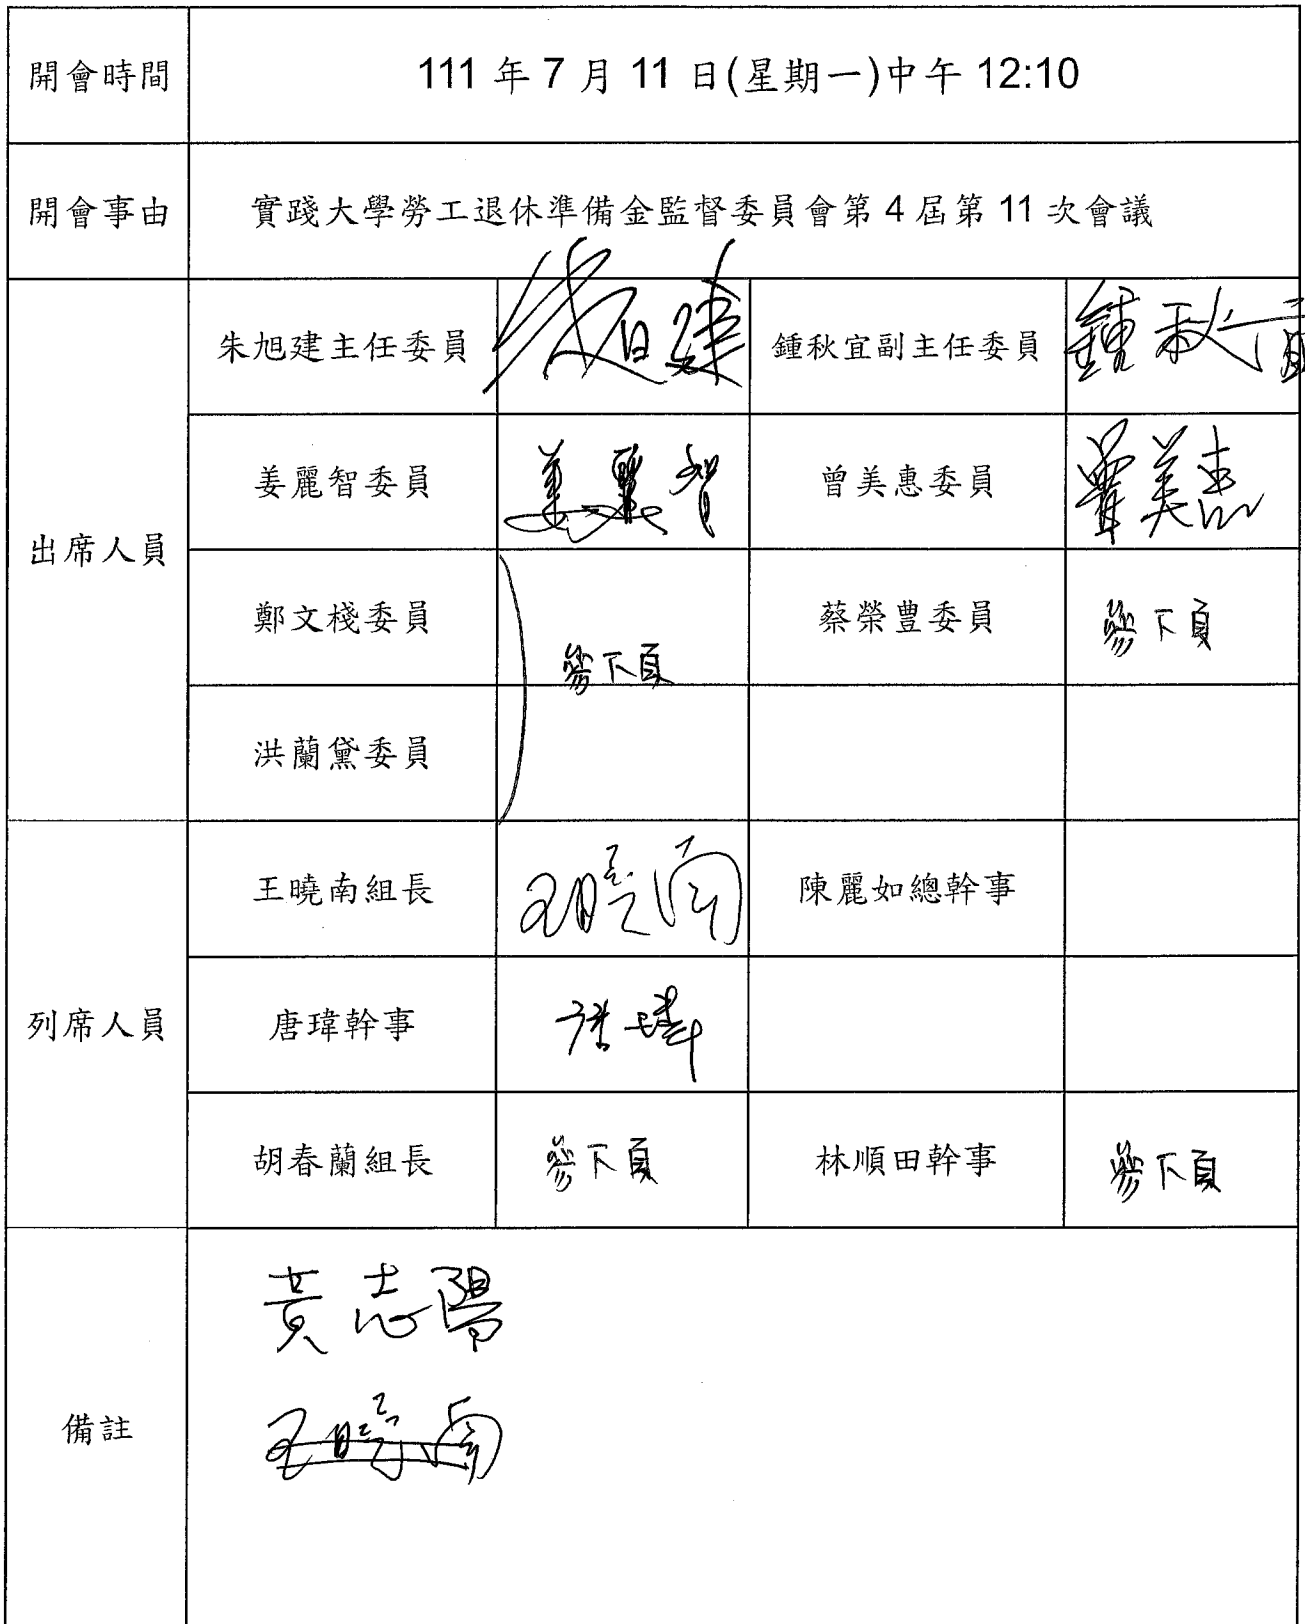 開會時間 111 年 7 月 11 日(星期一)中午 12:10
開會事由 實踐大學勞工退休準備金監督委員會第 4 屆第 11 次會議
出席人員
朱旭建主任委員 朱旭建 鍾秋宜副主任委員 鍾秋宜
姜麗智委員 姜麗智 曾美惠委員 曾美惠
鄭文棧委員 參下頁 蔡榮豊委員 參下頁
洪蘭黛委員
列席人員
王曉南組長 王曉南 陳麗如總幹事
唐瑋幹事 唐瑋
胡春蘭組長 參下頁 林順田幹事 參下頁
備註
黃志陽
王曉南